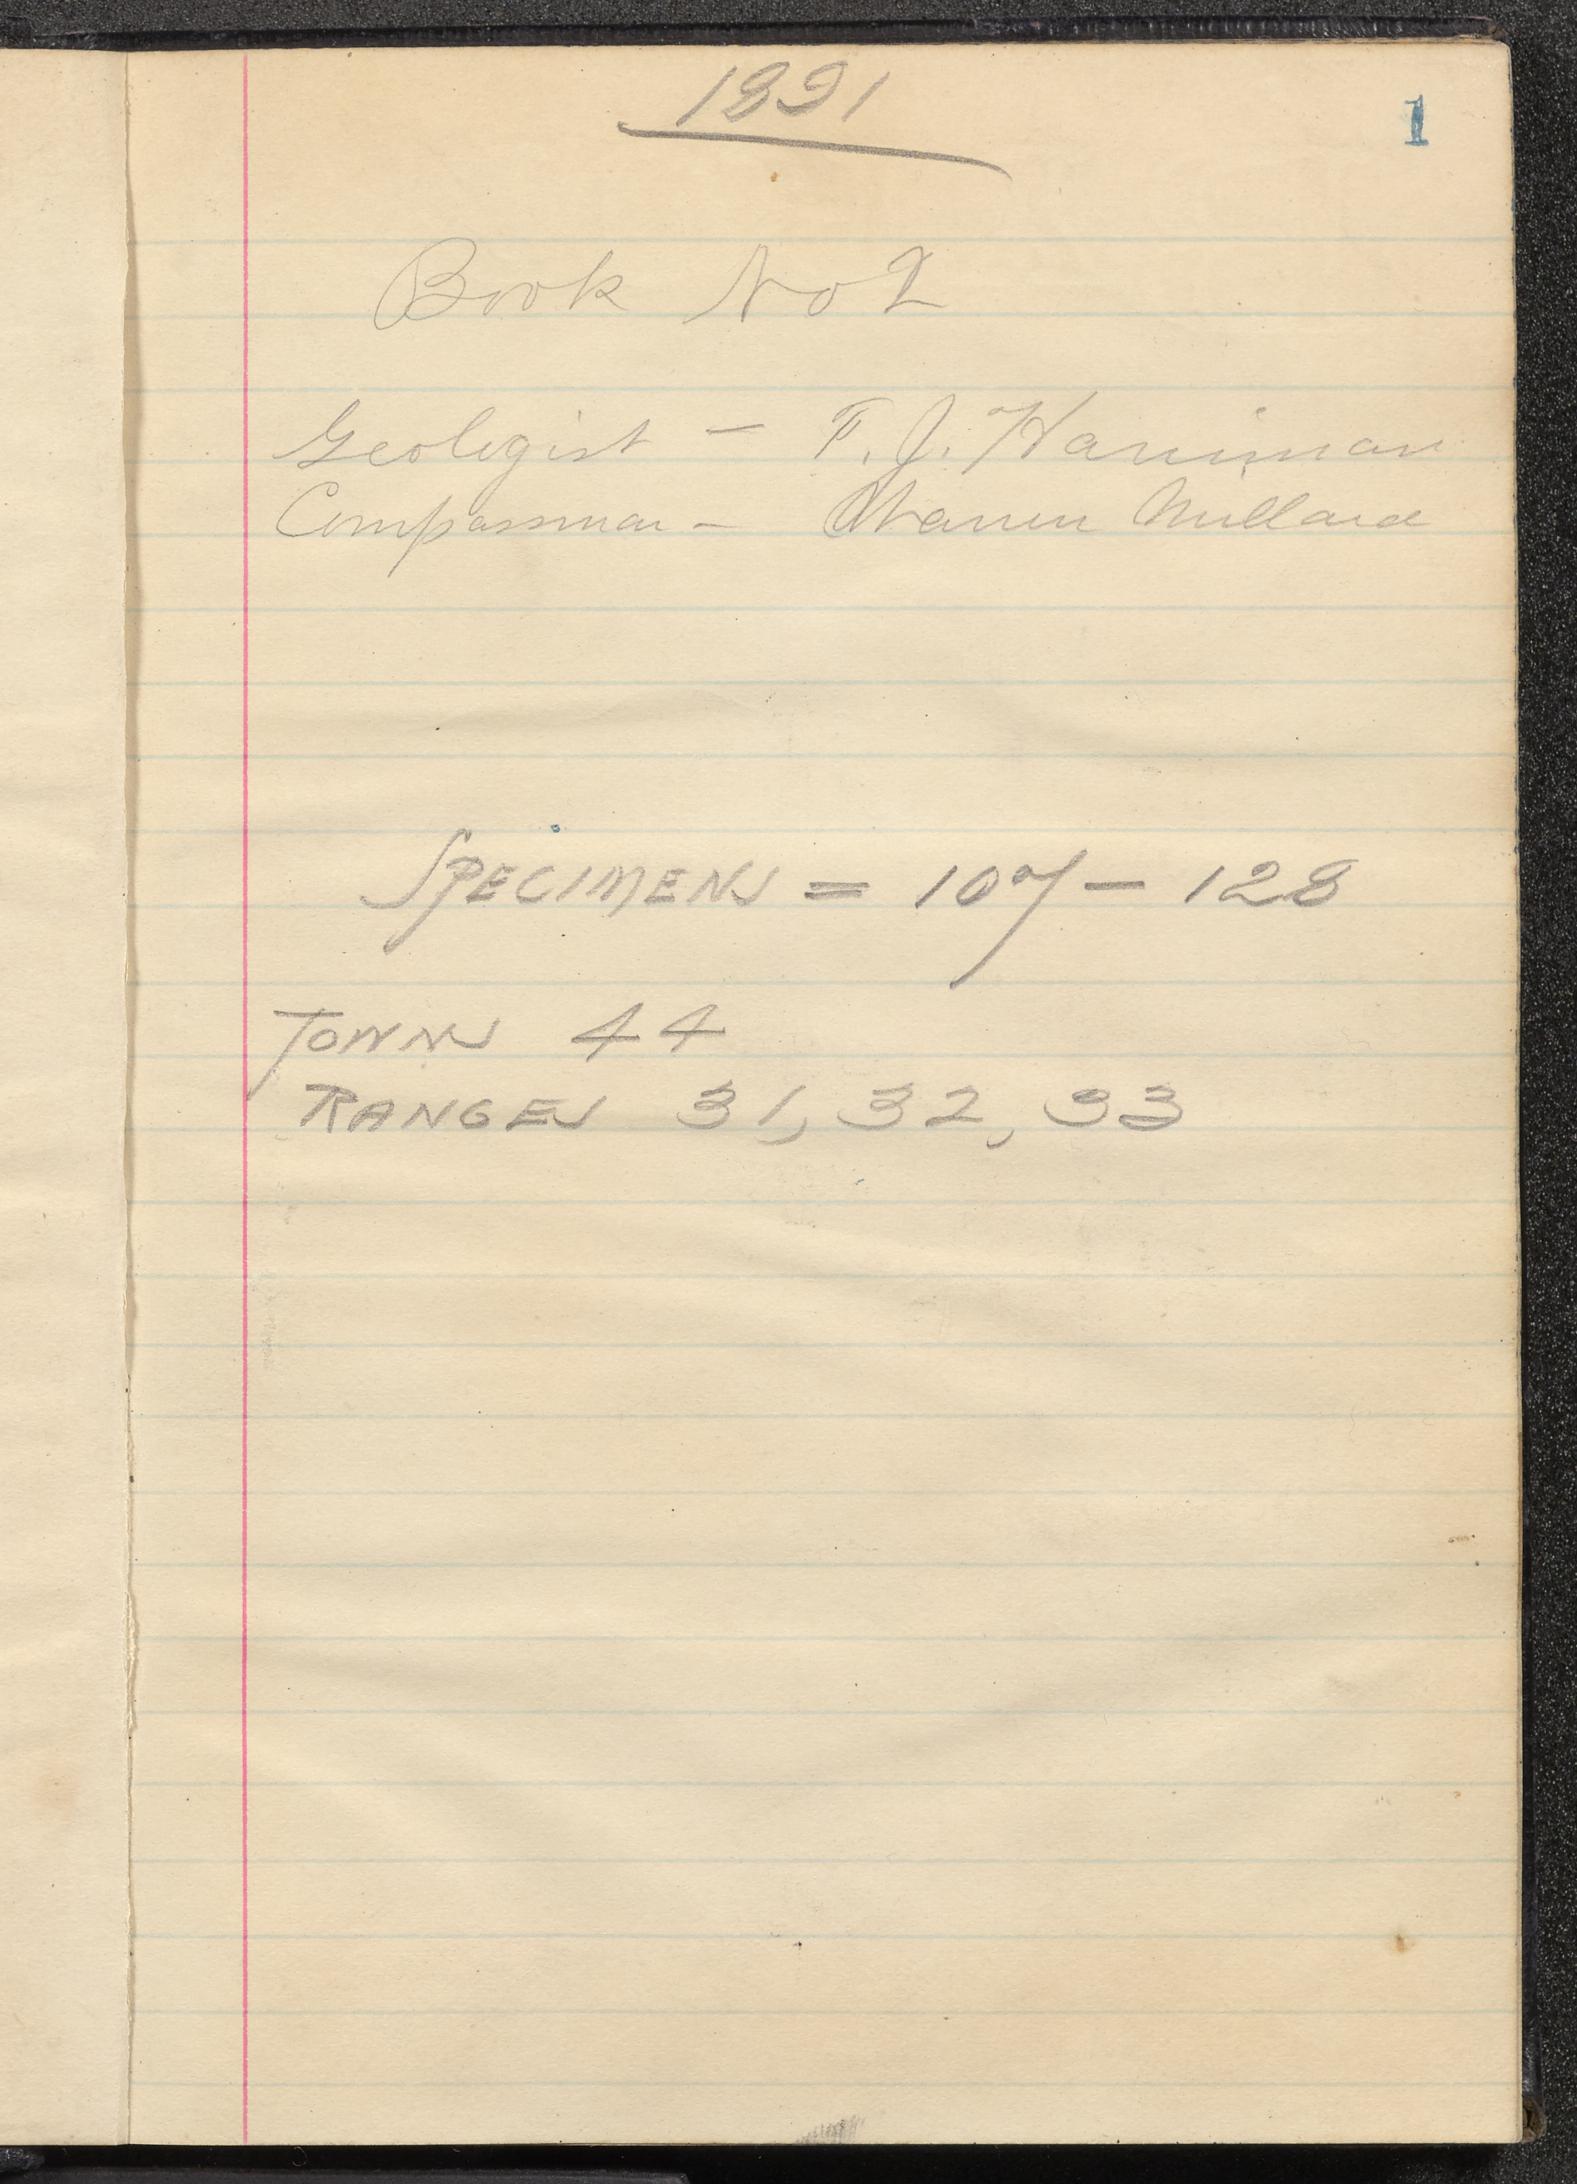 1891
1
Book No 2
Geologist - F. J. Harriman
Compassman - Warren Millard
SPECIMENS = 107 - 128
TOWNS 44
RANGES 31, 32, 33